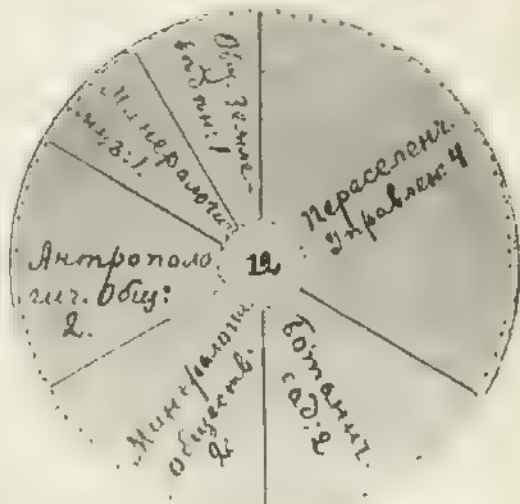 Переселенч.
Управлен: 4
Ботанич.
сад: 2
Минералогич.
обществ:
2
Антрополо
гич. Общ:
2.
Минералогич.
муз: 1.
Общ. Землe-
1
12